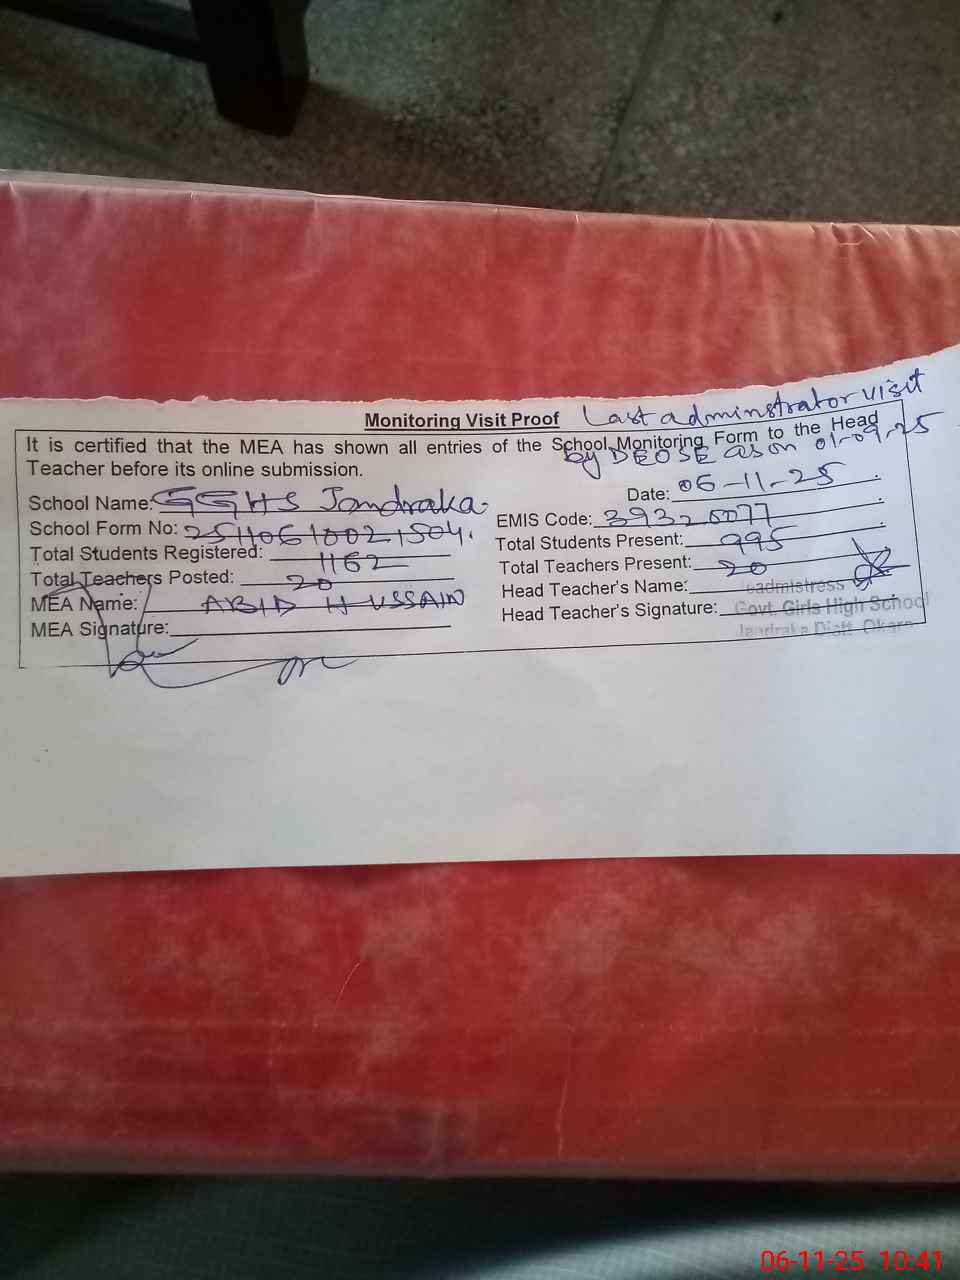 Last adminstrator visit
Monitoring Visit Proof
by DEOSE as on 01-09-25
It is certified that the MEA has shown all entries of the School Monitoring Form to the Head
Teacher before its online submission.
School Name: GGHS Jandraka.
Date: 06-11-25
School Form No:
EMIS Code:
Total Students Registered: 1162
Total Students Present: 995
Total Teachers Posted: 20
Total Teachers Present: 20
MEA Name: ABID HUSSAIN
Head Teacher's Name:
eadmistress
MEA Signature:
Head Teacher's Signature:
Govt. Girls High School
Jandraka Distt. Okara
06-11-25 10:41